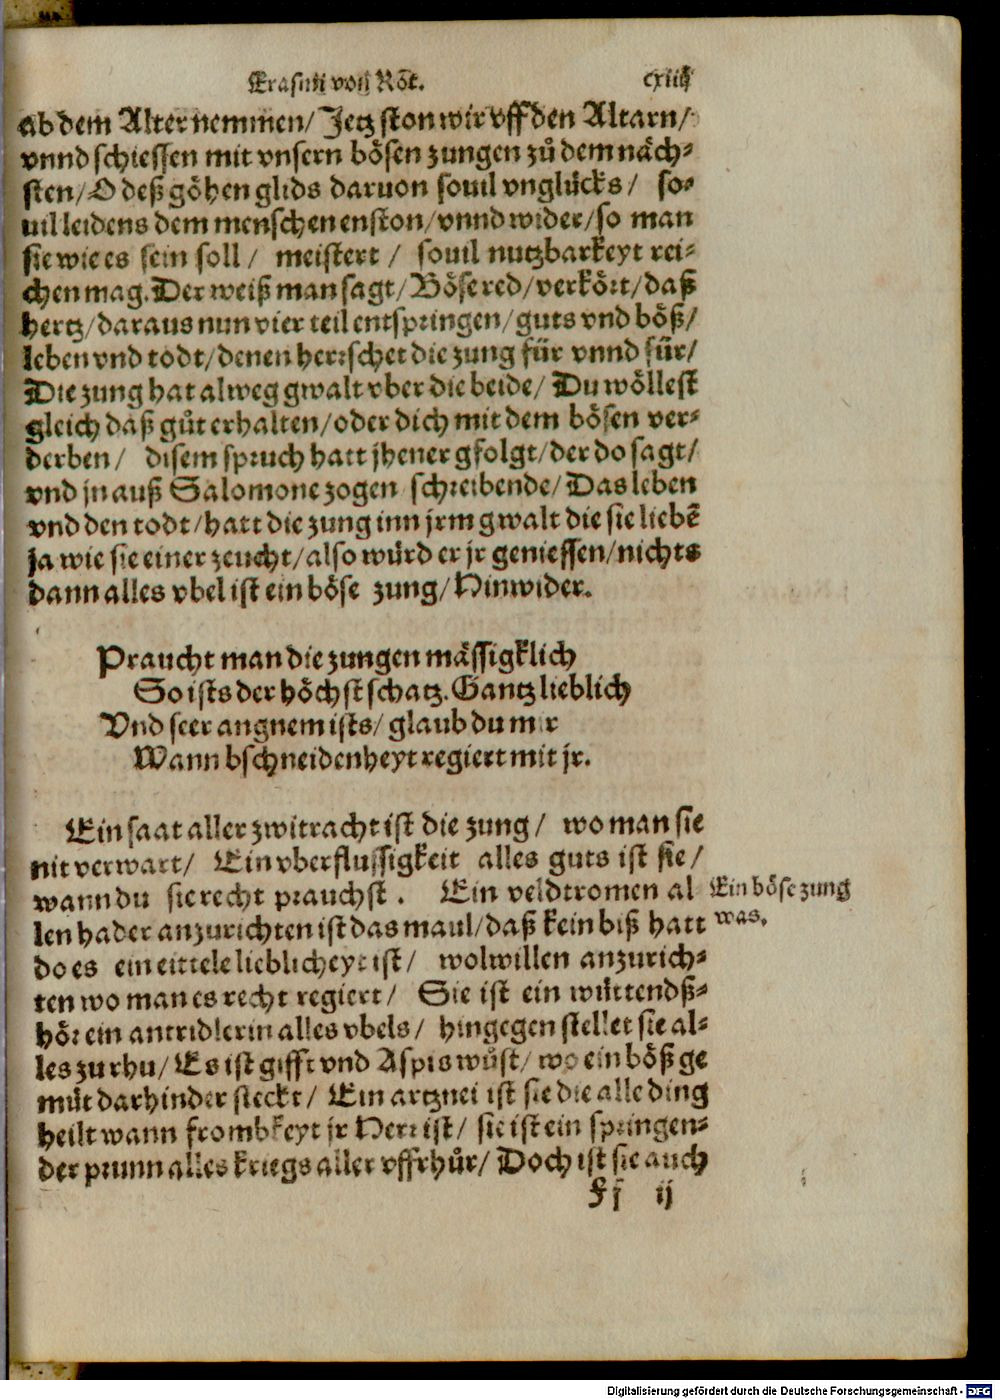 Erasmi von Rot. cxiiij
ab dem Alter nemmen/ Jetz ston wir vff den Altarn/
vnnd schiessen mit vnsern bösen zungen zů dem näch-
sten/ O deß göhen glids daruon souil vnglücks/ so-
uil leidens dem menschen enston/ vnnd wider/ so man
sie wie es sein soll/ meistert/ souil nutzbarkeyt rei-
chen mag. Der weiß man sagt/ Böse red/ verkört/ daß
hertz/ daraus nun vier teil entspringen/ guts vnd böß/
leben vnd todt/ denen herrschet die zung für vnnd für/
Die zung hat alweg gwalt vber die beide/ Du wöllest
gleich daß gůt erhalten/ oder dich mit dem bösen ver-
derben/ disem spruch hatt jhener gfolgt/ der do sagt/
vnd jn auß Salomone zogen schreibende/ Das leben
vnd den todt/ hatt die zung inn jrm gwalt die sie liebē
ja wie sie einer zeucht/ also würd er jr geniessen/ nichts
dann alles vbel ist ein böse zung/ Hinwider.
Praucht man die zungen mässigklich
So ists der höchst schatz. Gantz lieblich
Vnd seer angnem ists/ glaub du mir
Wann bschneidenheyt regiert mit jr.
Ein saat aller zwitracht ist die zung/ wo man sie
nit verwart/ Ein vberflussigkeit alles guts ist sie/
wann du sie recht prauchst. Ein veldtromen al
len hader anzurichten ist das maul/ daß kein biß hatt
do es ein eittele lieblicheyt ist/ wolwillen anzurich-
ten wo man es recht regiert/ Sie ist ein wüttendß-
hör ein antridlerin alles vbels/ hingegen stellet sie al-
les zu rhu/ Es ist gifft vnd Aspis wůst/ wo ein böß ge
müt darhinder steckt/ Ein artznei ist sie die alle ding
heilt wann frombkeyt jr Herr ist/ sie ist ein springen-
der prunn alles kriegs aller vffrhůr/ Doch ist sie auch
Ein böse zung
was.
Ff ij
Digitalisierung gefördert durch die Deutsche Forschungsgemeinschaft - DFG